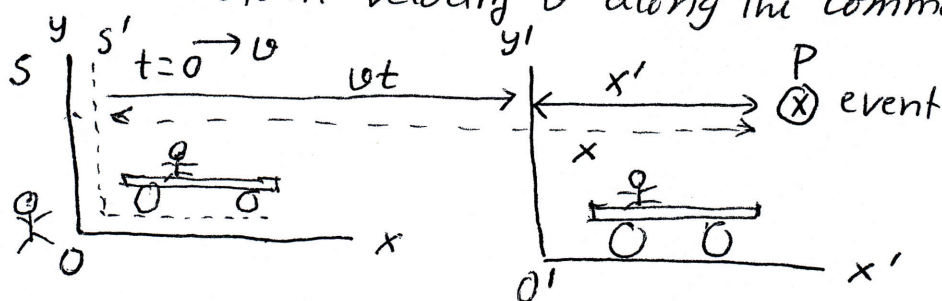 velocity v along the comm
y S' y'
S t=0 → v vt x' P
ⓧ event
x
O x O' x'